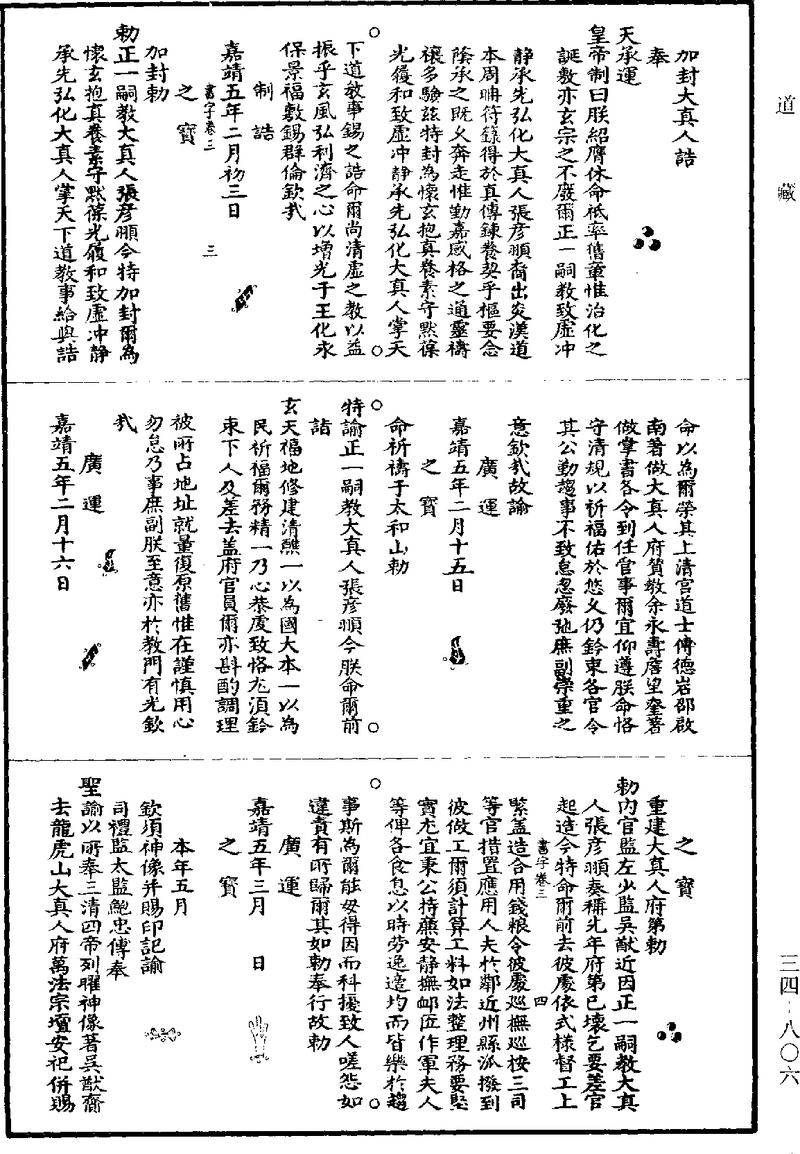 道藏
加封大真人誥
奉
天承運
皇帝制曰朕紹膺休命祗率舊章惟治化之
誕敷亦玄宗之不廢爾正一嗣教致虛冲
靜承先弘化大真人張彥頨裔出炎漢道
本周聃符籙得於真傳鍊養契乎樞要念
蔭承之既久奔走惟勤嘉感格之通靈禱
禳多驗茲特封為懷玄抱真養素守默葆
光履和致虛冲靜承先弘化大真人掌天
下道教事錫之誥命爾尚清虛之教以益
振乎玄風弘利濟之心以增光于王化永
保景福敷錫群倫欽哉
制誥
嘉靖五年二月初三日
書字卷三
三
之寶
加封勅
勅正一嗣教大真人張彥頨今特加封爾為
懷玄抱真養素守默葆光履和致虛冲靜
承先弘化大真人掌天下道教事給與誥
命以為爾榮其上清宮道士傅德岩邵啟
南著做大真人府贊教余永壽詹望奎著
做掌書各令到任官事爾宜仰遵朕命恪
守清規以祈福佑於悠久仍鈐束各官令
其公勤趨事不致怠忽廢弛庶副崇重之
意欽哉故諭
廣運
嘉靖五年二月十五日
之寶
命祈禱于太和山勅
特諭正一嗣教大真人張彥頨今朕命爾前
詣
玄天福地修建清醮一以為國大本一以為
民祈福爾務精一乃心恭虔致恪尤須鈐
束下人及差去蓋府官員爾亦斟酌調理
被所占地址就量復原舊惟在謹慎用心
勿怠乃事庶副朕至意亦於教門有光欽
哉
廣運
嘉靖五年二月十六日
之寶
重建大真人府第勅
勅內官監左少監吳猷近因正一嗣教大真
人張彥頨奏稱先年府第已壞乞要差官
起造今特命爾前去彼處依式樣督工上
書字卷三
四
緊蓋造合用錢粮令彼處巡撫巡按三司
等官措置應用人夫於鄰近州縣派撥到
彼做工爾須計算工料如法整理務要堅
實尤宜秉公持廉安靜撫卹匠作軍夫人
等俾各食息以時勞逸適均而皆樂於趨
事斯為爾能毋得因而科擾致人嗟怨如
違責有所歸爾其如勅奉行故勅
廣運
嘉靖五年三月　日
之寶
本年五月
欽須神像并賜印記諭
司禮監太監鮑忠傳奉
聖諭以所奉三清四帝列曜神像著吳猷齎
去龍虎山大真人府萬法宗壇安祀併賜
三四－八〇六